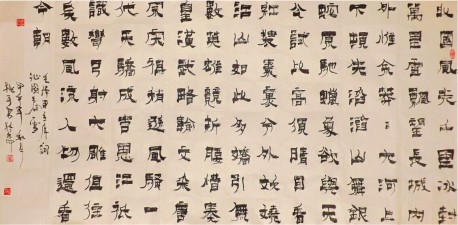 北國風光千里冰封
萬里雪飄望長城內
外惟餘莽莽大河上
下頓失滔滔山舞銀
蛇原馳蠟象欲與天
公試比高須晴日看
紅裝素裹分外妖嬈
江山如此多嬌引無
數英雄競折腰惜秦
皇漢武略輸文采唐
宗宋祖稍遜風騷一
代天驕成吉思汗祗
識彎弓射大雕俱往
矣數風流人物還看
今朝
毛澤東主席詞
沁園春雪
甲午年